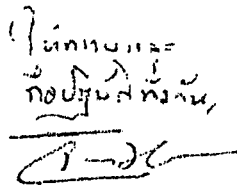 ให้ทราบและ
ถือปฏิบัติทั่วกัน